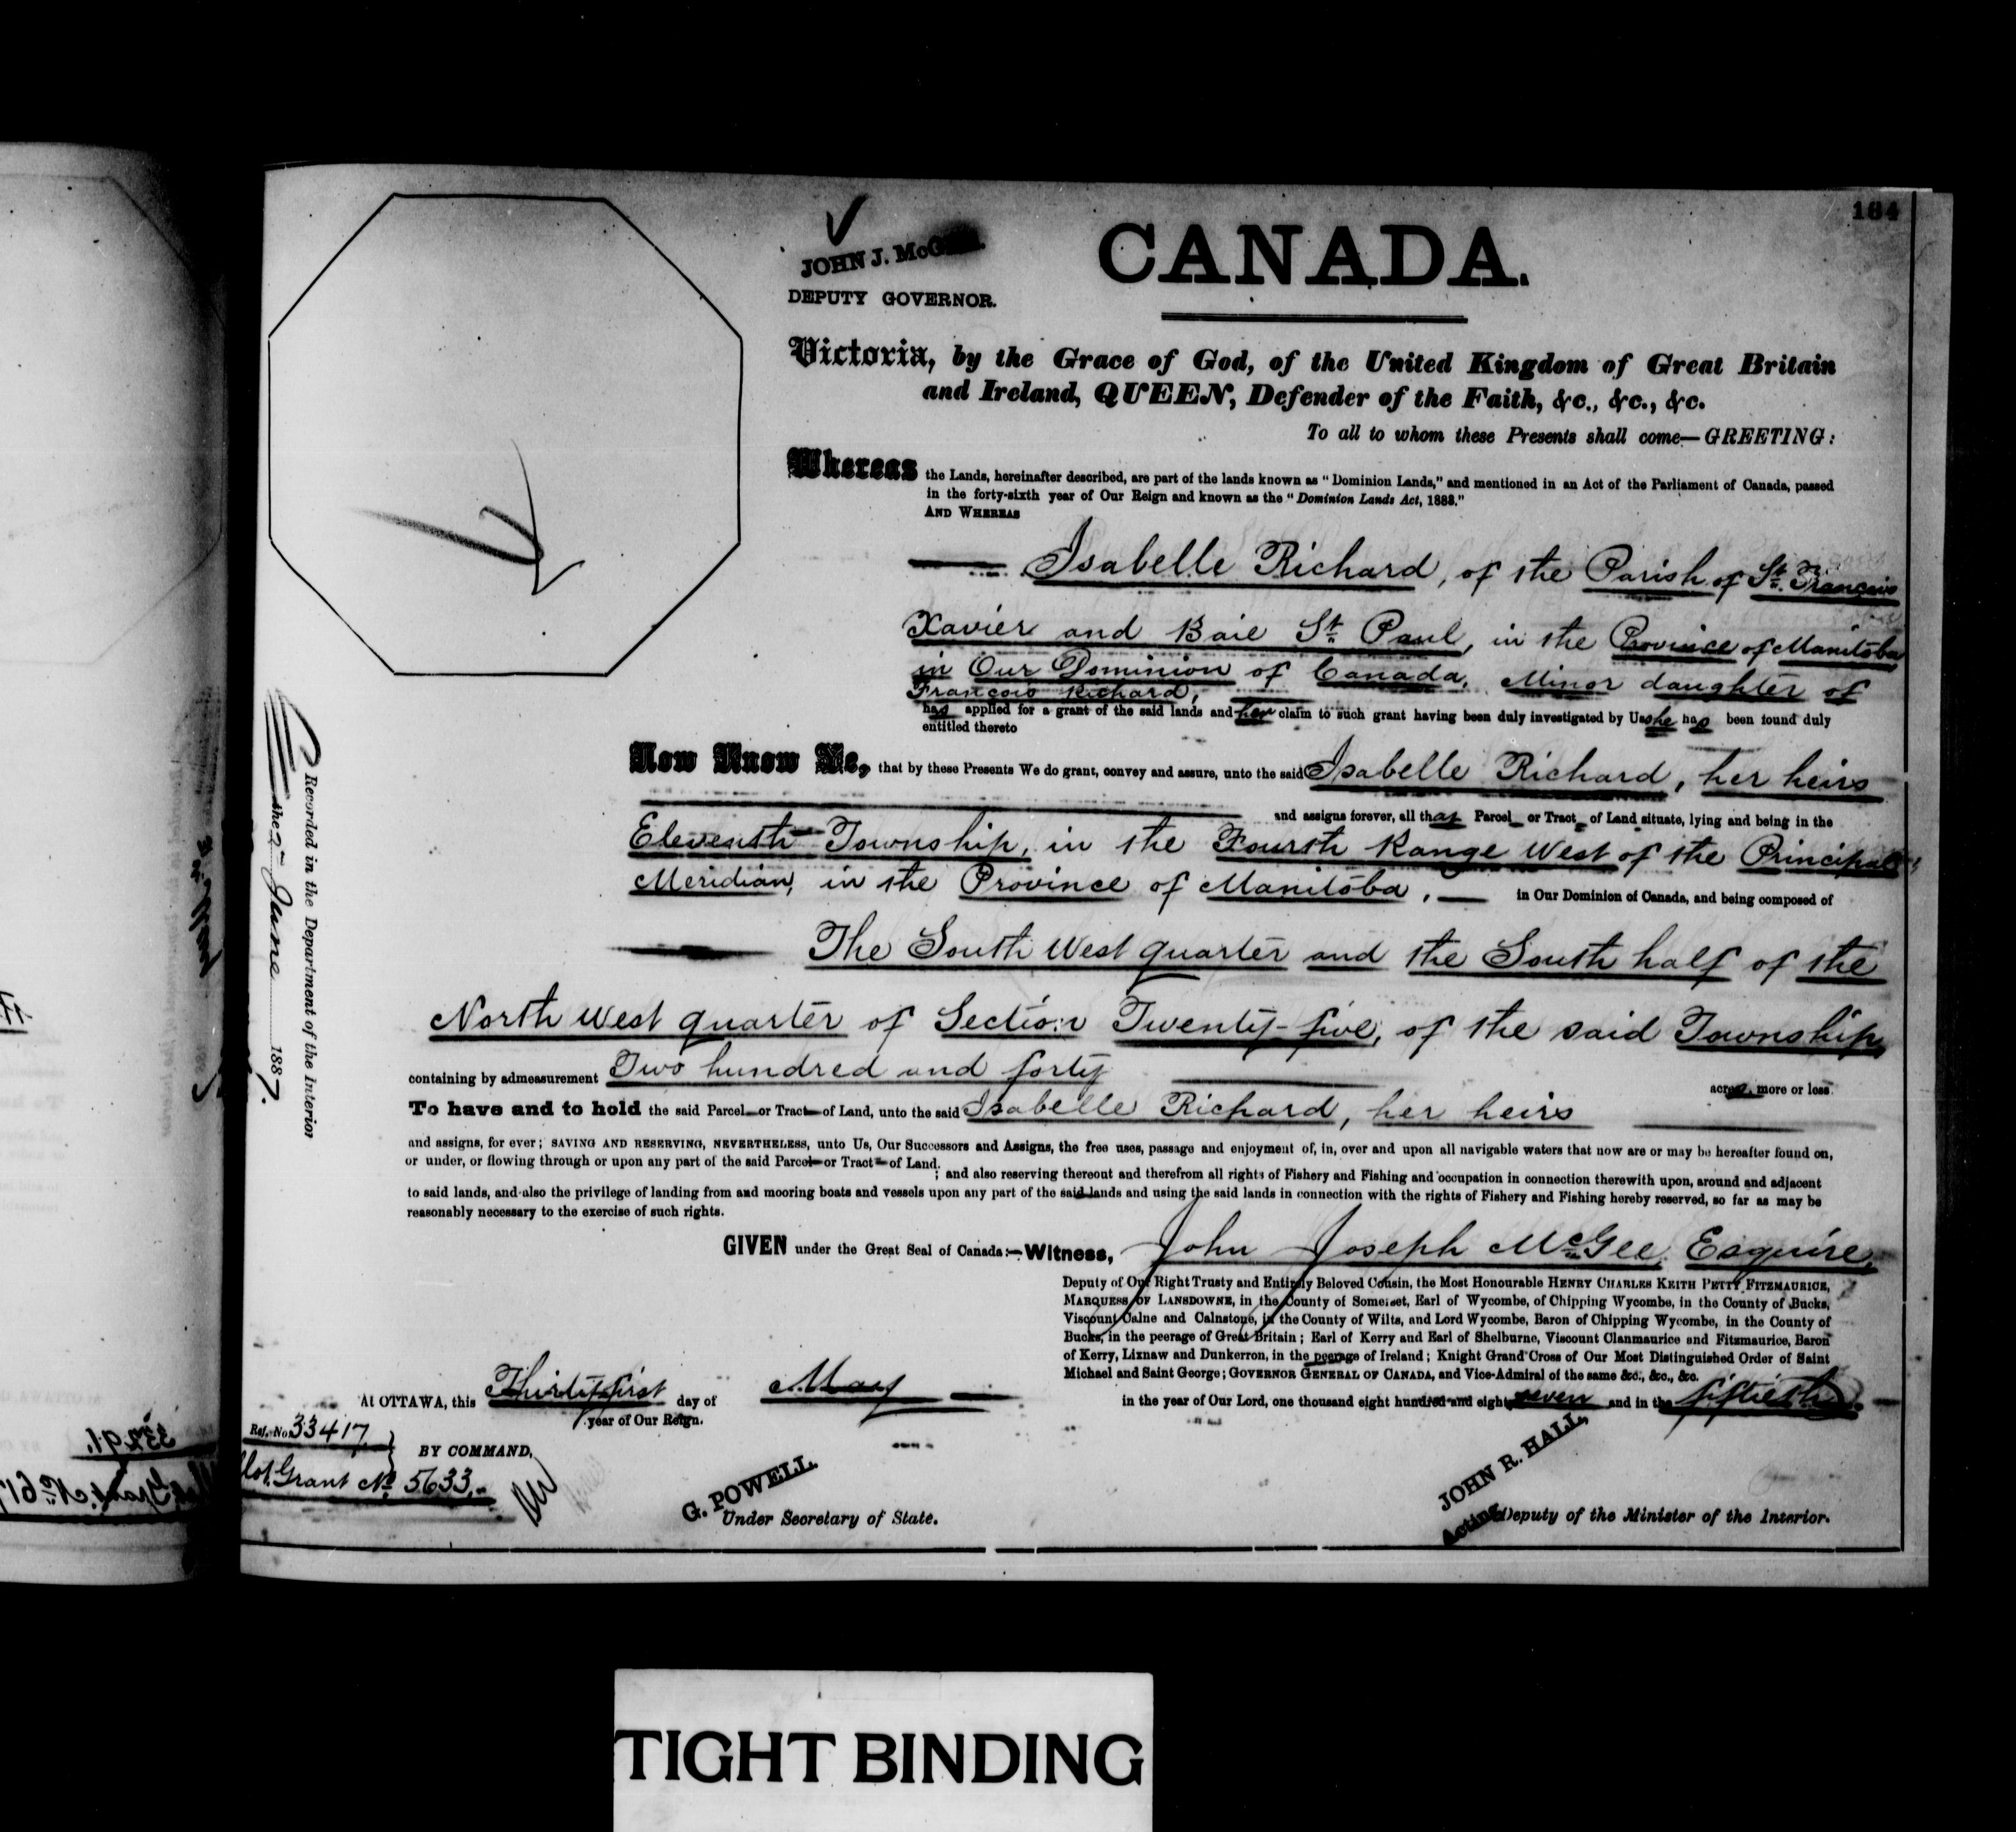 184
JOHN J. McG
DEPUTY GOVERNOR.
CANADA.
Victoria, by the Grace of God, of the United Kingdom of Great Britain
and Ireland, QUEEN, Defender of the Faith, &c., &c., &c.
To all to whom these Presents shall come—GREETING:
Whereas the Lands, hereinafter described, are part of the lands known as "Dominion Lands," and mentioned in an Act of the Parliament of Canada, passed
in the forty-sixth year of Our Reign and known as the "Dominion Lands Act, 1883."
AND WHEREAS
Isabelle Richard, of the Parish of St. Francois
Xavier and Baie St Paul, in the Province of Manitoba
in Our Dominion of Canada, Minor daughter of
Francois Richard,
has applied for a grant of the said lands and her claim to such grant having been duly investigated by Us she has been found duly
entitled thereto
Now Know Ye, that by these Presents We do grant, convey and assure, unto the said Isabelle Richard, her heirs
and assigns forever, all that Parcel or Tract of Land situate, lying and being in the
Eleventh Township, in the Fourth Range West of the Principal
Meridian, in the Province of Manitoba, in Our Dominion of Canada, and being composed of
The South West quarter and the South half of the
North West quarter of Section Twenty-five, of the said Township,
containing by admeasurement Two hundred and forty acres, more or less.
To have and to hold the said Parcel or Tract of Land, unto the said Isabelle Richard, her heirs
and assigns, for ever; SAVING AND RESERVING, NEVERTHELESS, unto Us, Our Successors and Assigns, the free uses, passage and enjoyment of, in, over and upon all navigable waters that now are or may be hereafter found on,
or under, or flowing through or upon any part of the said Parcel or Tract of Land.
; and also reserving thereout and therefrom all rights of Fishery and Fishing and occupation in connection therewith upon, around and adjacent
to said lands, and also the privilege of landing from and mooring boats and vessels upon any part of the said lands and using the said lands in connection with the rights of Fishery and Fishing hereby reserved, so far as may be
reasonably necessary to the exercise of such rights.
GIVEN under the Great Seal of Canada:—Witness, John Joseph McGee, Esquire,
Deputy of Our Right Trusty and Entirely Beloved Cousin, the Most Honourable HENRY CHARLES KEITH PETTY FITZMAURICE,
MARQUESS OF LANSDOWNE, in the County of Somerset, Earl of Wycombe, of Chipping Wycombe, in the County of Bucks,
Viscount Calne and Calnstone, in the County of Wilts, and Lord Wycombe, Baron of Chipping Wycombe, in the County of
Bucks, in the peerage of Great Britain; Earl of Kerry and Earl of Shelburne, Viscount Clanmaurice and Fitzmaurice, Baron
of Kerry, Lixnaw and Dunkerron, in the peerage of Ireland; Knight Grand Cross of Our Most Distinguished Order of Saint
Michael and Saint George; GOVERNOR GENERAL OF CANADA, and Vice-Admiral of the same &c., &c., &c.
At OTTAWA, this Thirty-first day of May in the year of Our Lord, one thousand eight hundred and eighty seven and in the fiftieth
year of Our Reign.
Ref. No. 33417
BY COMMAND,
Grant No 5633.
G. POWELL.
Under Secretary of State.
JOHN R. HALL,
Acting Deputy of the Minister of the Interior.
Recorded in the Department of the Interior
the 2 June 1887.
TIGHT BINDING